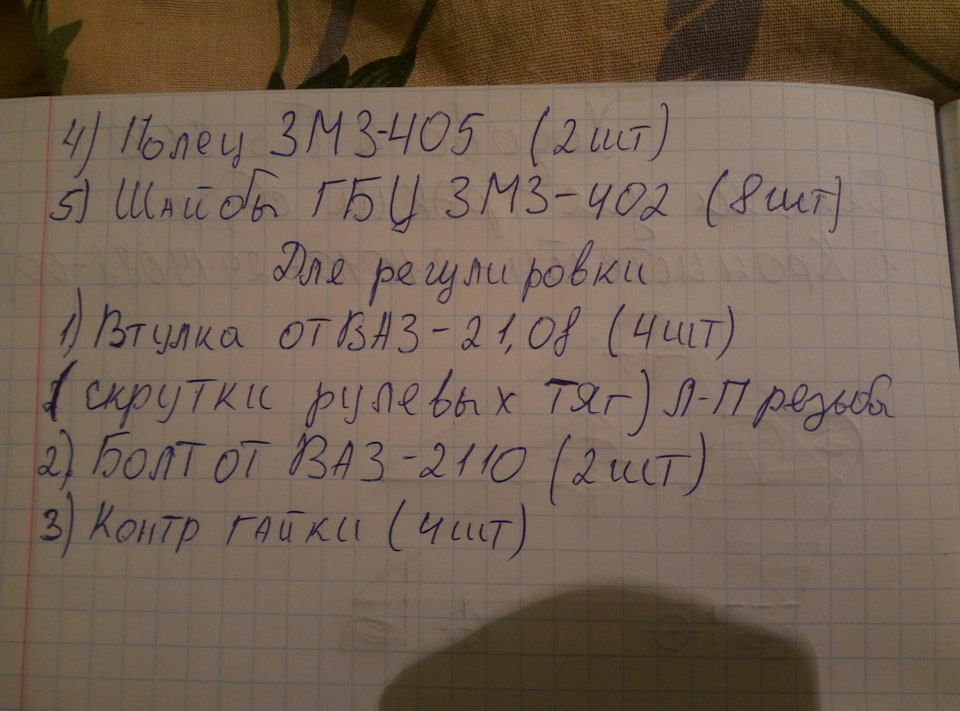 4) Полец ЗМЗ-405 (2шт)
5) Шайбы ГБЦ ЗМЗ-402 (8шт)
Для регулировки
1) Втулка от ВАЗ-21,08 (4шт)
(скрутки рулевых тяг) Л-П резьба
2) Болт от ВАЗ-2110 (2шт)
3) Контр гайки (4шт)